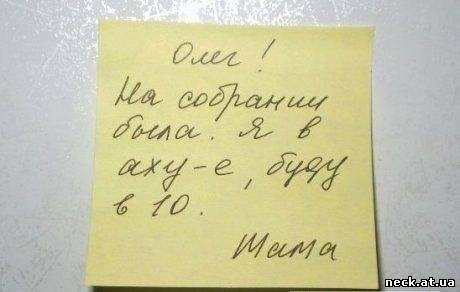 Олег!
На собрании
была. Я в
аху-е, буду
в 10.
Мама
neck.at.ua